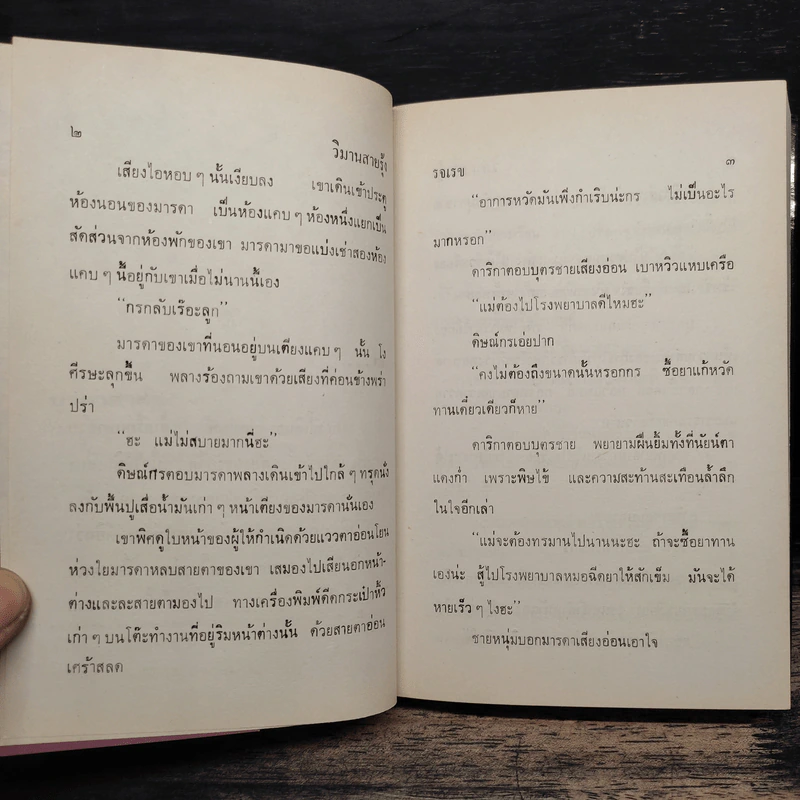 ๒
วิมานสายรุ้ง
เสียงไอหอบ ๆ นั้นเงียบลง เขาเดินเข้าประตู
ห้องนอนของมารดา เป็นห้องแคบ ๆ ห้องหนึ่งแยกเป็น
สัดส่วนจากห้องพักของเขา มารดามาขอแบ่งเช่าสองห้อง
แคบ ๆ นี้อยู่กับเขาเมื่อไม่นานนี้เอง
“กรกลับเร๊อะลูก”
มารดาของเขาที่นอนอยู่บนเตียงแคบ ๆ นั้น โง
ศีรษะลุกขึ้น พลางร้องถามเขาด้วยเสียงที่ค่อนข้างพร่า
ปร่า
“ฮะ แม่ไม่สบายมากนี่ฮะ”
ดิษณ์กรตอบมารดาพลางเดินเข้าไปใกล้ ๆ ทรุดนั่ง
ลงกับพื้นปูเสื่อน้ำมันเก่า ๆ หน้าเตียงของมารดานั่นเอง
เขาพิศดูใบหน้าของผู้ให้กำเนิดด้วยแววตาอ่อนโยน
ห่วงใยมารดาหลบสายตาของเขา เสมองไปเสียนอกหน้า-
ต่างและละสายตามองไป ทางเครื่องพิมพ์ดีดกระเป๋าหิ้ว
เก่า ๆ บนโต๊ะทำงานที่อยู่ริมหน้าต่างนั้น ด้วยสายตาอ่อน
เศร้าสลด
รจเรข
๓
“อาการหวัดมันเพิ่งกำเริบน่ะกร ไม่เป็นอะไร
มากหรอก”
ดาริกาตอบบุตรชายเสียงอ่อน เบาหวิวแหบเครือ
“แม่ต้องไปโรงพยาบาลดีไหมฮะ”
ดิษณ์กรเอ่ยปาก
“คงไม่ต้องถึงขนาดนั้นหรอกกร ซื้อยาแก้หวัด
ทานเดี๋ยวเดียวก็หาย”
ดาริกาตอบบุตรชาย พยายามฝืนยิ้มทั้งที่นัยน์ตา
แดงก่ำ เพราะพิษไข้ และความสะท้านสะเทือนล้ำลึก
ในใจอีกเล่า
“แม่จะต้องทรมานไปนานนะฮะ ถ้าจะซื้อยาทาน
เองน่ะ สู้ไปโรงพยาบาลหมอฉีดยาให้สักเข็ม มันจะได้
หายเร็ว ๆ ไงฮะ”
ชายหนุ่มบอกมารดาเสียงอ่อนเอาใจ